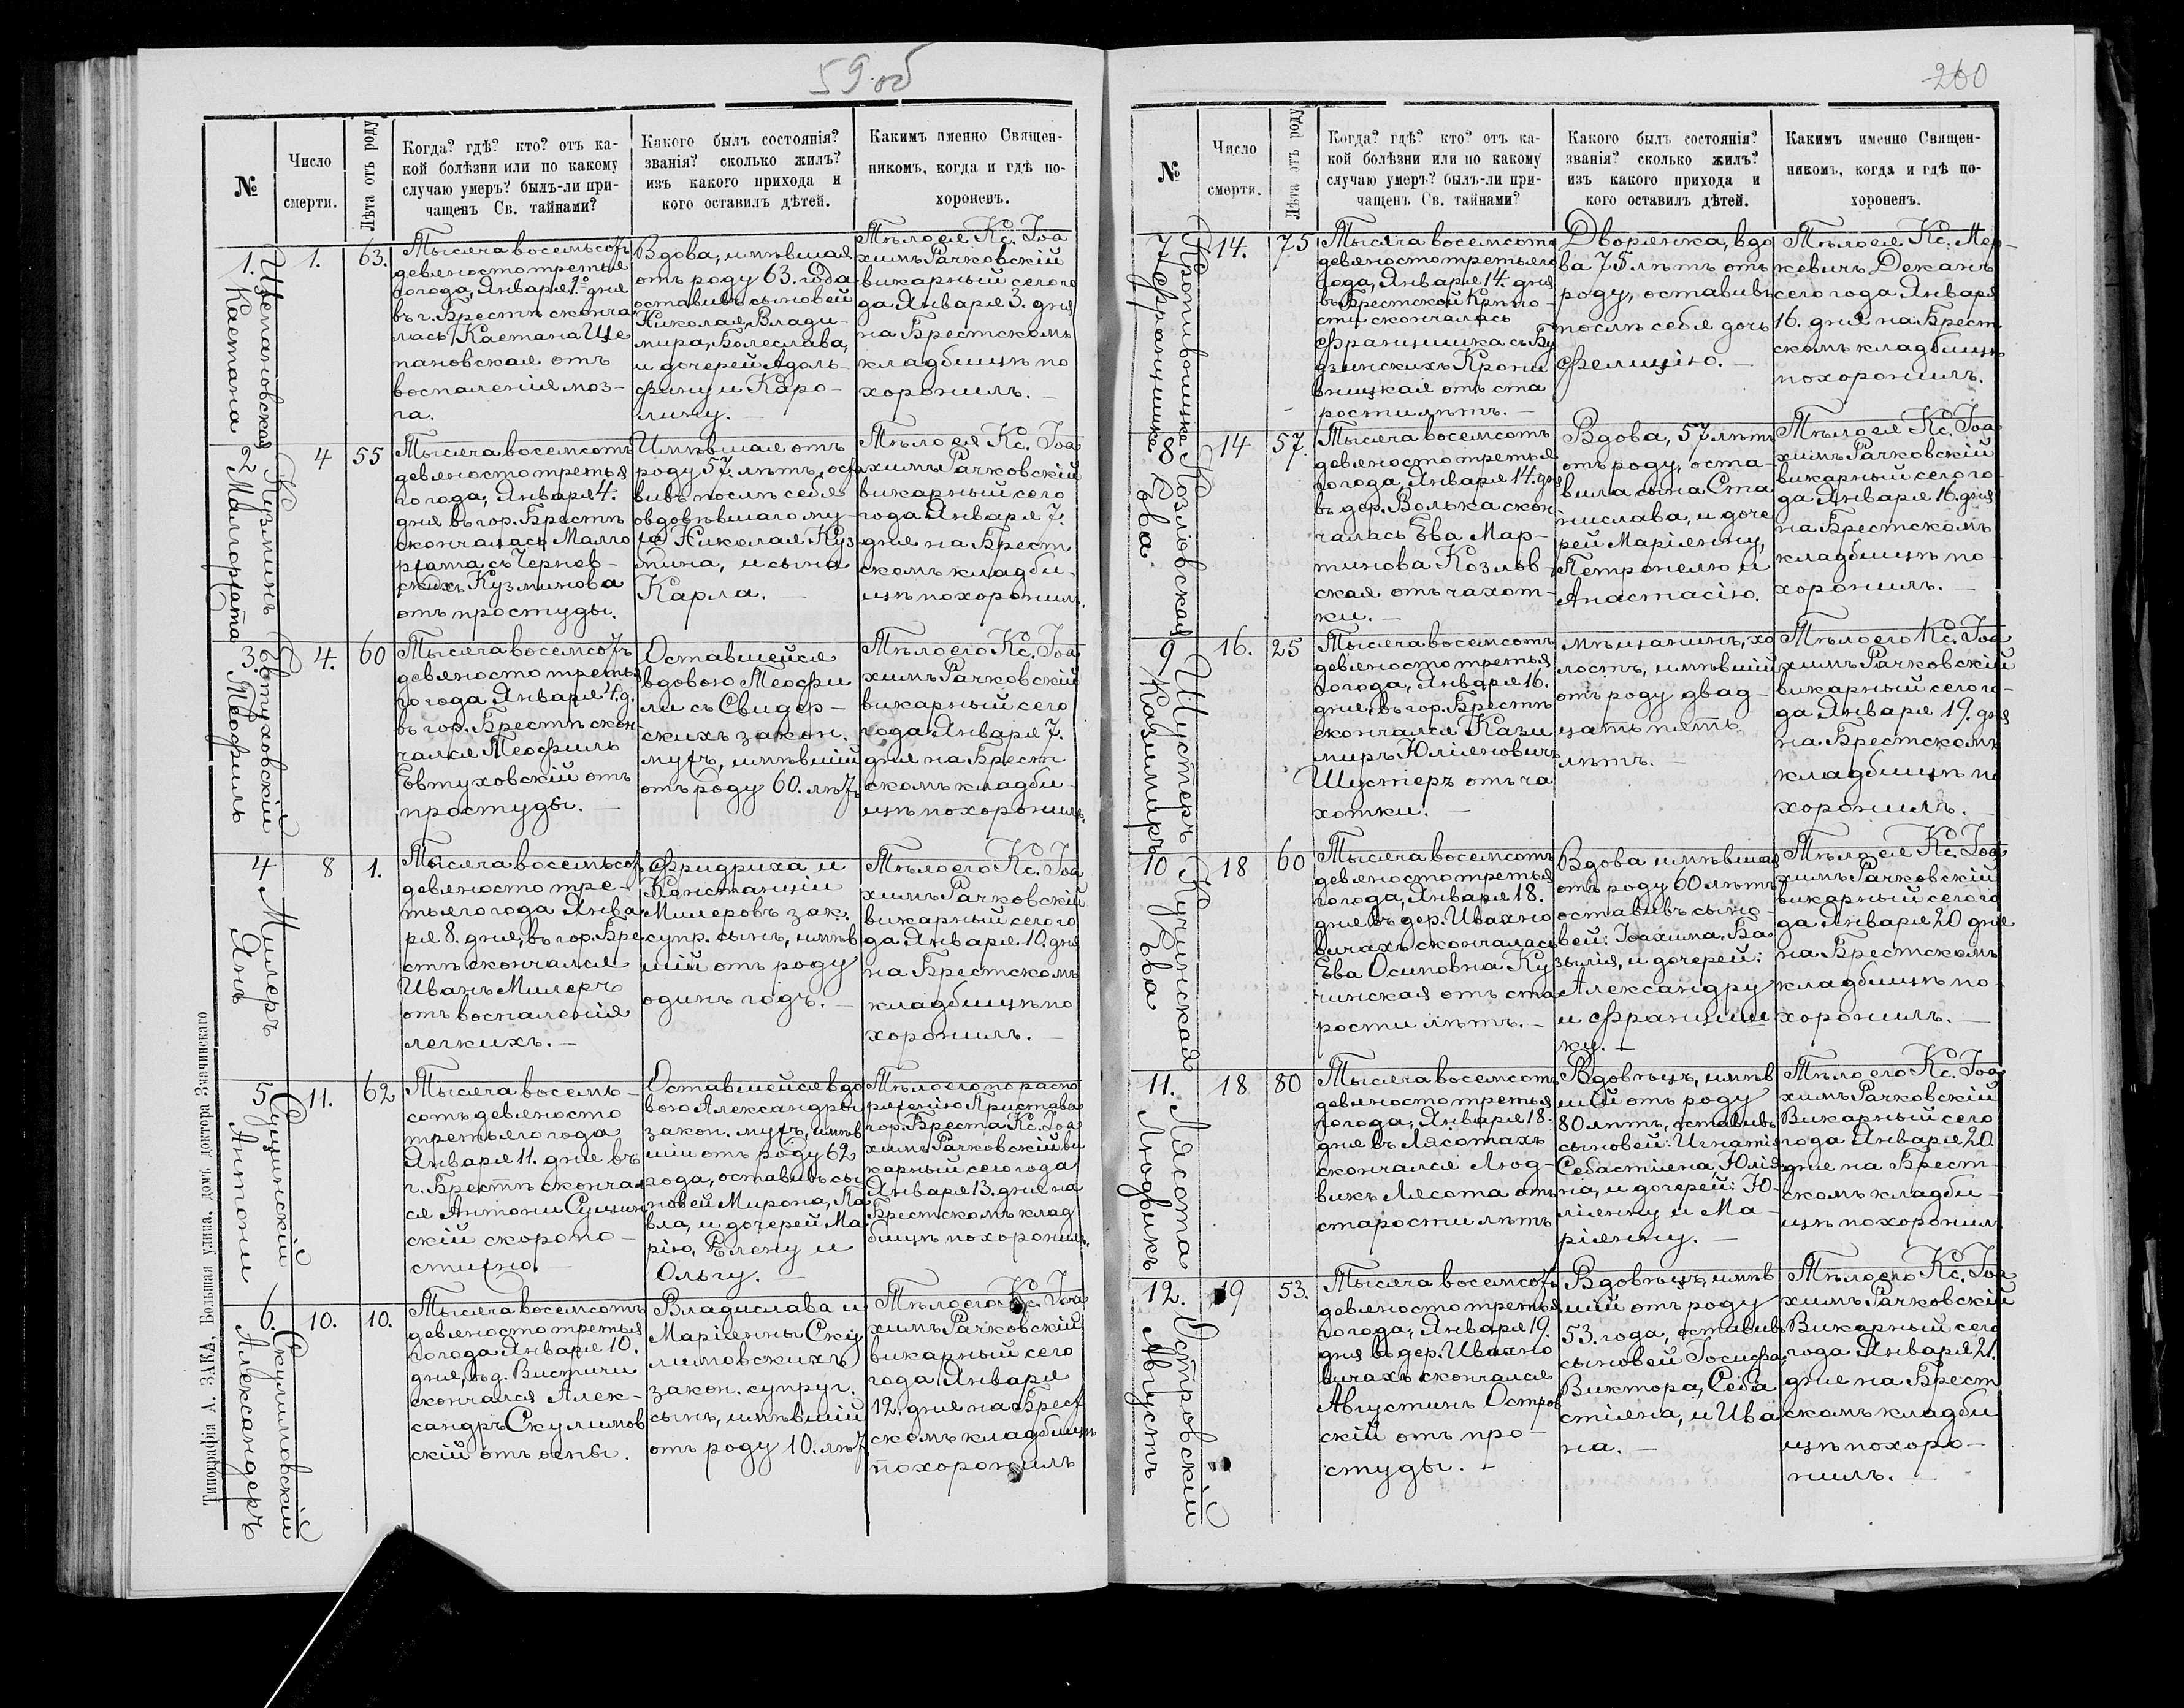 59 об
260
№
Число
смерти.
Лѣта отъ роду
Когда? гдѣ? кто? отъ ка-
кой болѣзни или по какому
случаю умеръ? былъ-ли при-
чащенъ Св. тайнами?
Какого былъ состоянія?
званія? сколько жилъ?
изъ какого прихода и
кого оставилъ дѣтей.
Какимъ именно Священ-
никомъ, когда и гдѣ по-
хороненъ.
1.
Щепановская
Каетана
1.
63.
Тысяча восемьсотъ
девяносто третья
го года, Января 1º дня
въ г. Брестѣ сконча
лась Каетана Ще
пановская отъ
воспаленія моз-
га.
Вдова, имѣвшая
отъ роду 63. года
оставивъ сыновей
Николая, Влади-
мира, Болеслава,
и дочерей Адоль-
фину и Каро-
лину. —
Тѣло ея Кс. Іоа
химъ Рачковскій
викарный сего го
да Января 3. дня
на Брестскомъ
кладбищѣ по
хоронилъ. —
2
Кузминъ
Малгоржата
4
55
Тысяча восемсотъ
девяносто третья
го года, Января 4.
дня въ гор. Брестѣ
скончалась Малго
ржата съ Чернев-
скихъ Кузминова
отъ простуды.
Имѣвшая отъ
роду 57. лѣтъ, оста
вивъ послѣ себя
овдовѣвшаго му-
жа Николая Куз-
мина, и сына
Карла. —
Тѣло ея Кс. Іоа
химъ Рачковскій
викарный сего
года Января 7.
дня на Брест
скомъ кладби-
щѣ похоронилъ.
3.
Евтуховскій
Теофиль
4.
60
Тысяча восемсотъ
девяносто третья
го года Января 4. д.
въ гор. Брестѣ скон
чался Теофиль
Евтуховскій отъ
простуды. —
Оставшейся
вдовою Теофи
ли съ Свидер-
скихъ закон.
мужъ, имѣвшій
отъ роду 60. лѣтъ
Тѣло его Кс. Іоа
химъ Рачковскій
викарный сего
года Января 7.
дня на Брест
скомъ кладби-
щѣ похоронилъ.
4
Милеръ
Янъ
8
1.
Тысяча восемьсот
девяносто тре-
тьяго года Янва
ря 8. дня, въ гор. Бре
стѣ скончался
Иванъ Милеръ
отъ воспаленія
легкихъ. —
Фридриха и
Констанціи
Милеровъ зак.
супр. сынъ, имѣв
шій отъ роду
одинъ годъ. —
Тѣло его Кс. Іоа
химъ Рачковскій
викарный сего го
да Января 10. дня
на Брестскомъ
кладбищѣ по
хоронилъ. —
5
Сущинскій
Антони
11.
62
Тысяча восемь-
сотъ девяносто
третьяго года
Января 11. дня въ
г. Брестѣ сконча
ся Антони Сущин
скій скоропо-
стижно. —
Оставшейся вдо
вою Александры
закон. мужъ, имѣв
шій отъ роду 62
года, оставивъ сы
новей Мирона, Па
вла, и дочерей Ма
рію, Елену и
Ольгу. —
Тѣло его по распо
ряженію Пристава
гор. Бреста Кс. Іоа
химъ Рачковскій ви
карный сего года
Января 13. дня на
Брестскомъ клад
бищѣ похоронилъ.
6.
Скулимовскій
Александеръ
10.
10.
Тысяча восемсотъ
девяносто третья
го года Января 10.
дня, въ д. Вистичи
скончался Алек-
сандръ Скулимов
скій отъ оспы.
Владислава и
Маріянны Ску
лимовскихъ
закон. супруг.
сынъ, имѣвшій
отъ роду 10. лѣтъ
Тѣло его Кс. Іоа
химъ Рачковскій
викарный сего
года Января
12. дня на Брест
скомъ кладбищѣ
похоронилъ
Типографія А. ЗАКА, Большая улица, домъ доктора Значинскаго
№
Число
смерти.
Лѣта отъ роду
Когда? гдѣ? кто? отъ ка-
кой болѣзни или по какому
случаю умеръ? былъ-ли при-
чащенъ Св. тайнами?
Какого былъ состоянія?
званія? сколько жилъ?
изъ какого прихода и
кого оставилъ дѣтей.
Какимъ именно Священ-
никомъ, когда и гдѣ по-
хороненъ.
7
Францишка
14.
75
Тысяча восемсотъ
девяносто третьяго
года, Января 14. дня
въ Брестской Крѣпо-
сти скончалась
Францишка съ Бу
дзинскихъ Кропи
вницкая отъ ста
рости лѣтъ. —
Дворянка, вдо
ва 75 лѣтъ отъ
роду, оставивъ
послѣ себя дочь
Фелицію. —
Тѣло ея Кс. Мер-
кевичъ Деканъ
сего года Января
16. дня на Брест
скомъ кладбищѣ
похоронилъ.
8
Козловская
Ева
14
57.
Тысяча восемсотъ
девяносто третья
го года, Января 14. дня
въ дер. Волька скон
чалась Ева Мар-
тинова Козлов-
ская отъ чахот-
ки. —
Вдова, 57 лѣтъ
отъ роду, оста-
вила сына Ста
нислава, и доче
рей Маріянну,
Петронелю и
Анастасію.
Тѣло ея Кс. Іоа
химъ Рачковскій
викарный сего го-
да Января 16. дня
на Брестскомъ
кладбищѣ по
хоронилъ. —
9
Шустеръ
Казимиръ
16.
25
Тысяча восемсотъ
девяносто третья
го года, Января 16.
дня, въ гор. Брестѣ
скончался Кази
миръ Юліяновичъ
Шустеръ отъ ча
хотки. —
мѣщанинъ, хо
лостъ, имѣвшій
отъ роду двад-
цать пять
лѣтъ. —
Тѣло его Кс. Іоа
химъ Рачковскій
викарный сего го-
да Января 19. дня
на Брестскомъ
кладбищѣ по
хоронилъ. —
10
Кучинская
Ева
18
60
Тысяча восемсотъ
девяносто третья
го года, Января 18.
дня въ дер. Ивахно
вичахъ скончалась
Ева Осиповна Ку
чинская отъ ста
рости лѣтъ. —
Вдова имѣвшая
отъ роду 60 лѣтъ
оставивъ сыно-
вей: Іоахима, Ба
зылія, и дочерей:
Александру
и Францишку
ку. —
Тѣло ея Кс. Іоа
химъ Рачковскій
викарный сего го
да Января 20 дня
на Брестскомъ
кладбищѣ по-
хоронилъ. —
11.
Лясота
Людвикъ
18
80
Тысяча восемсотъ
девяносто третья
го года, Января 18.
дня въ Лясотахъ
скончался Люд-
викъ Лясота отъ
старости лѣтъ
Вдовецъ, имѣв
шій отъ роду
80 лѣтъ, оставивъ
сыновей: Игнатія
Себастіяна, Юлія
на, и дочерей: Ю-
ліянну и Ма-
ріянну. —
Тѣло его Кс. Іоа
химъ Рачковскій
Викарный сего
года Января 20.
дня на Брест-
скомъ кладби-
щѣ похоронил
12.
Островскій
Августъ
19
53.
Тысяча восемсотъ
девяносто третья
го года, Января 19.
дня въ дер. Ивахно
вичахъ скончался
Августинъ Остров
скій отъ про-
студы. —
Вдовецъ, имѣв
шій отъ роду
53. года, оставивъ
сыновей Іосифа,
Виктора, Себа
стіяна, и Ива
на. —
Тѣло его Кс. Іоа
химъ Рачковскій
Викарный сего
года Января 21.
дня на Брест
скомъ кладби
щѣ похоро-
нилъ. —